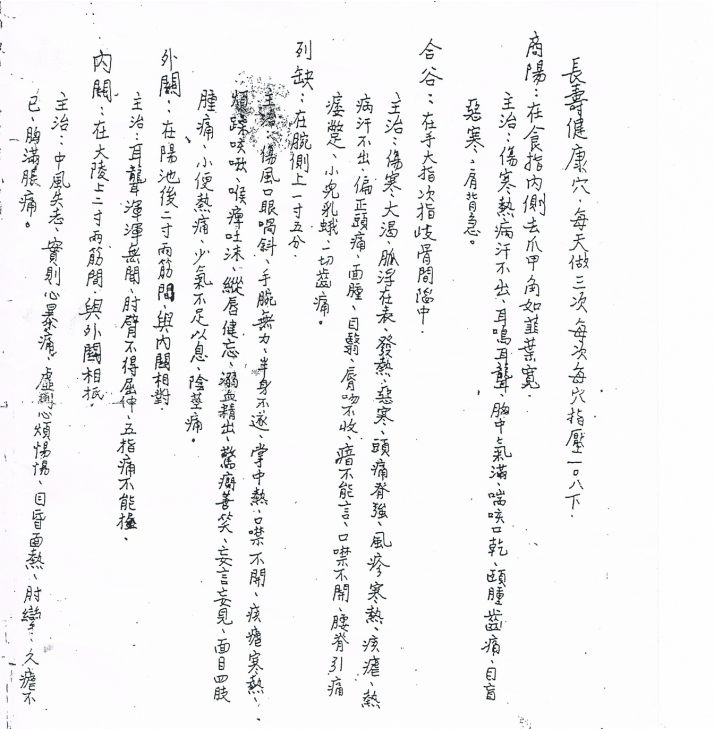 長壽健康穴,每天做三次每次每穴指壓一〇八下.
商陽:在食指內側去爪甲角如韭葉寬.
主治:傷寒熱病汗不出、耳鳴耳聾、胸中氣滿、喘咳口乾、頤腫齒痛、目盲
惡寒、肩背急。
合谷:在手大指次指歧骨間陷中.
主治:傷寒大渴、脈浮在表、發熱、惡寒、頭痛脊強、風疹寒熱、痎瘧、熱
病汗不出、偏正頭痛、面腫、目翳、唇吻不收、瘖不能言、口噤不開、腰脊引痛
痿躄、小兒乳蛾、一切齒痛。
列缺:在腕側上一寸五分.
主治:傷風口眼喎斜、手腕無力、半身不遂、掌中熱、口噤不開、痎瘧寒熱、
煩躁咳嗽、喉痺吐沫、縱唇健忘、溺血精出、驚癇善笑、妄言妄見、面目四肢
腫痛、小便熱痛、少氣不足以息、陰莖痛。
外關:在陽池後二寸兩筋間、與內關相對.
主治:耳聾渾渾無聞、肘臂不得屈伸、五指痛不能握、
內關:在大陵上二寸兩筋間、與外關相抵.
主治:中風失志、實則心暴痛、虛則心煩惕惕、目昏面熱、肘攣、久瘧不
已、胸滿脹痛。